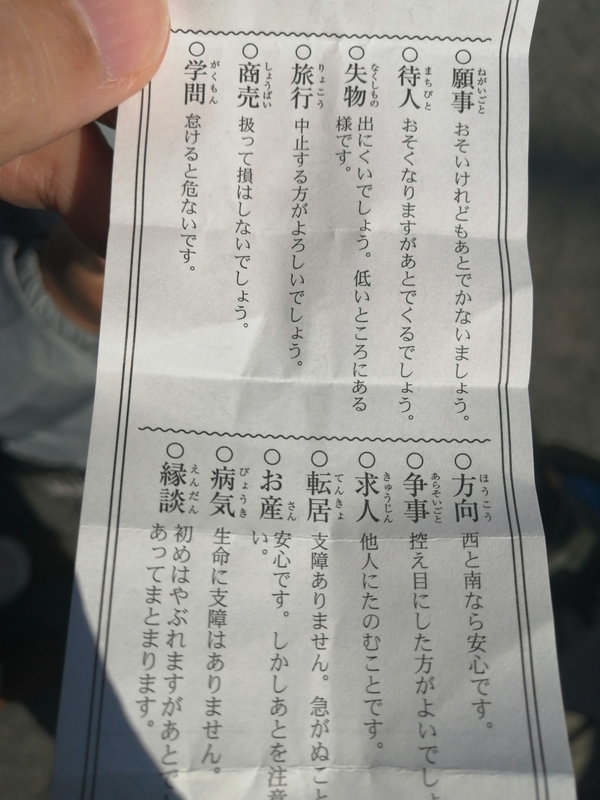 ねがいごと
○願事 おそいけれどもあとでかないましょう。
まちびと
○待人 おそくなりますがあとでくるでしょう。
なくしもの
○失物 出にくいでしょう。低いところにある
様です。
りょこう
○旅行 中止する方がよろしいでしょう。
しょうばい
○商売 扱って損はしないでしょう。
がくもん
○学問 怠けると危ないです。
ほうこう
○方向 西と南なら安心です。
あらそいごと
○争事 控え目にした方がよいでしょ
きゅうじん
○求人 他人にたのむことです。
てんきょ
○転居 支障ありません。急がぬこと
さん
○お産 安心です。しかしあとを注意
い。
びょうき
○病気 生命に支障はありません。
えんだん
○縁談 初めはやぶれますがあとで
あってまとまります。